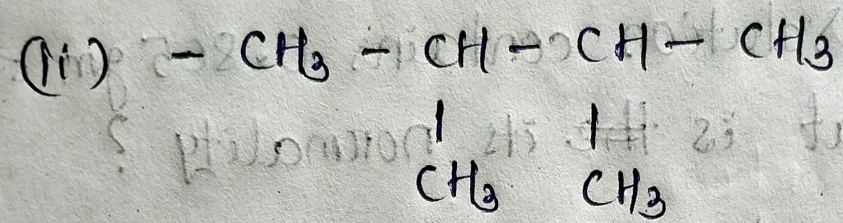 (ii) - CH3 - CH - CH - CH3
| |
CH3 CH3